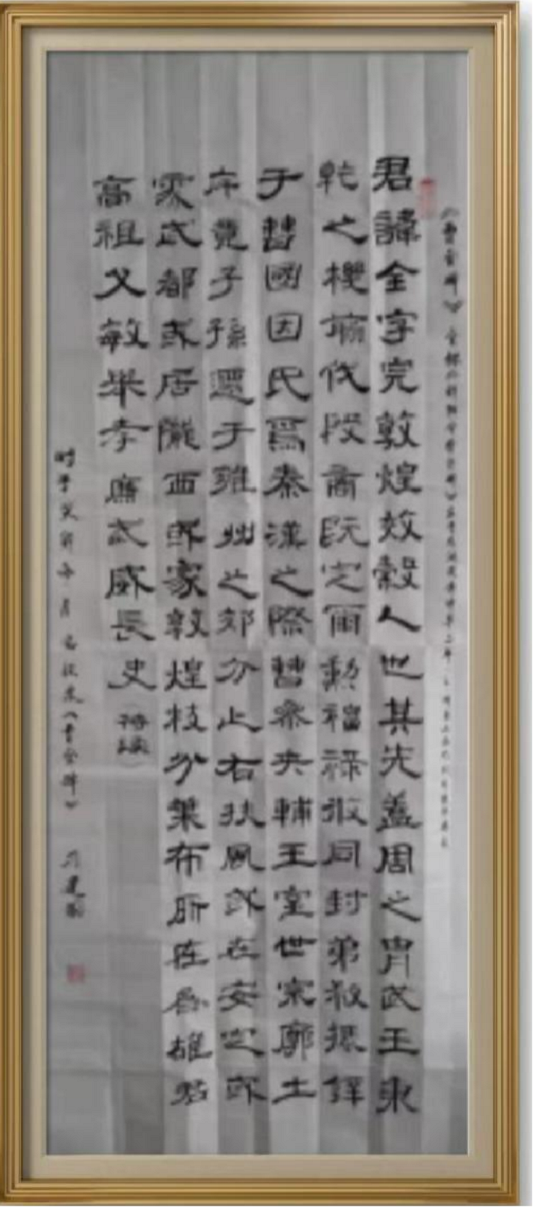 《曹全碑》全称
君諱全字完敦煌效穀人也其先蓋周之胄武王秉
乾之機翦伐殷商既定爾勳福祿攸同封弟叔振鐸
于曹國因氏焉秦漢之際曹參夾輔王室世宗廓土
斥竟子孫遷于雍州之郊分止右扶風或在安定或
處武都或居隴西或家敦煌枝分葉布所在為雄君
高祖父敏舉孝廉武威長史 待續
时于癸卯年 月 《曹全碑》 建